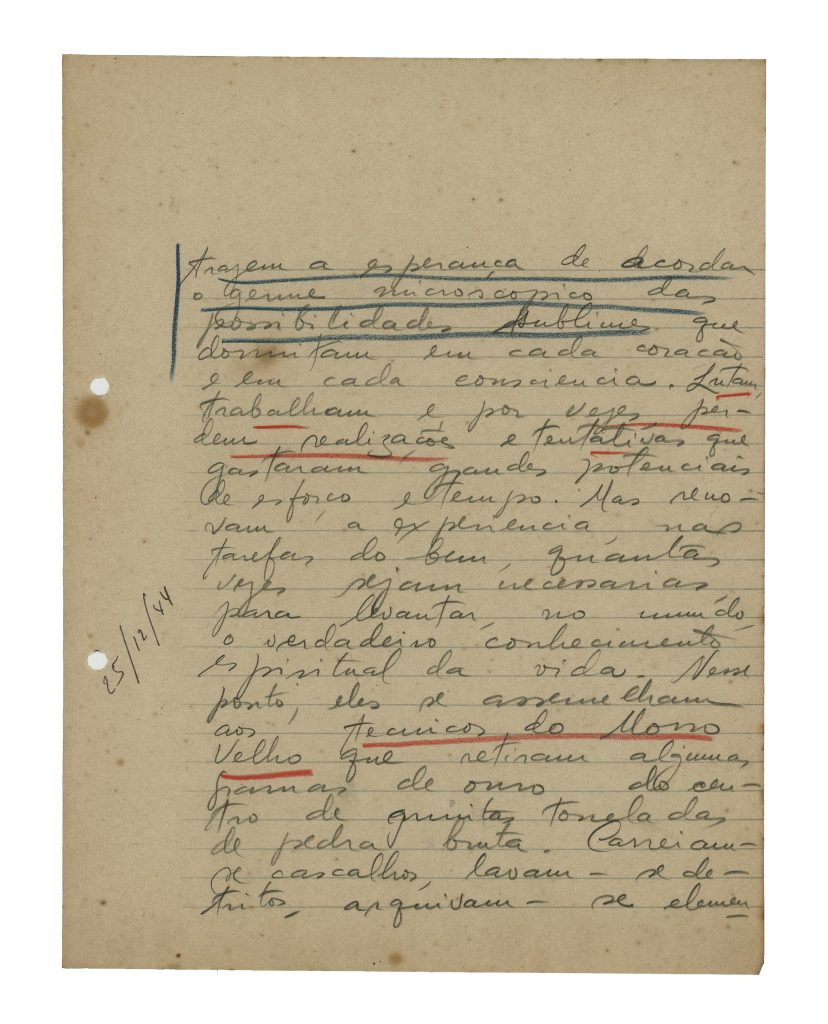 trazem a esperança de acordar
o germe microscopico das
possibilidades sublimes que
dormitam em cada coracão
e em cada consciencia. Lutam,
trabalham e por vezes per-
dem realizações e tentativas que
gastaram grandes potenciais
de esforço e tempo. Mas reno-
vam a experiencia, nas
tarefas do bem, quantas
vezes sejam necessarias
para levantar, no mundo,
o verdadeiro conhecimento
espiritual da vida. Nesse
ponto, eles se assemelham
aos tecnicos do Morro
Velho que retiram algumas
gramas de ouro do cen-
tro de muitas toneladas
de pedra bruta. Carreiam-
se cascalhos, lavam-se de-
tritos, arquivam-se elemen
25/12/44